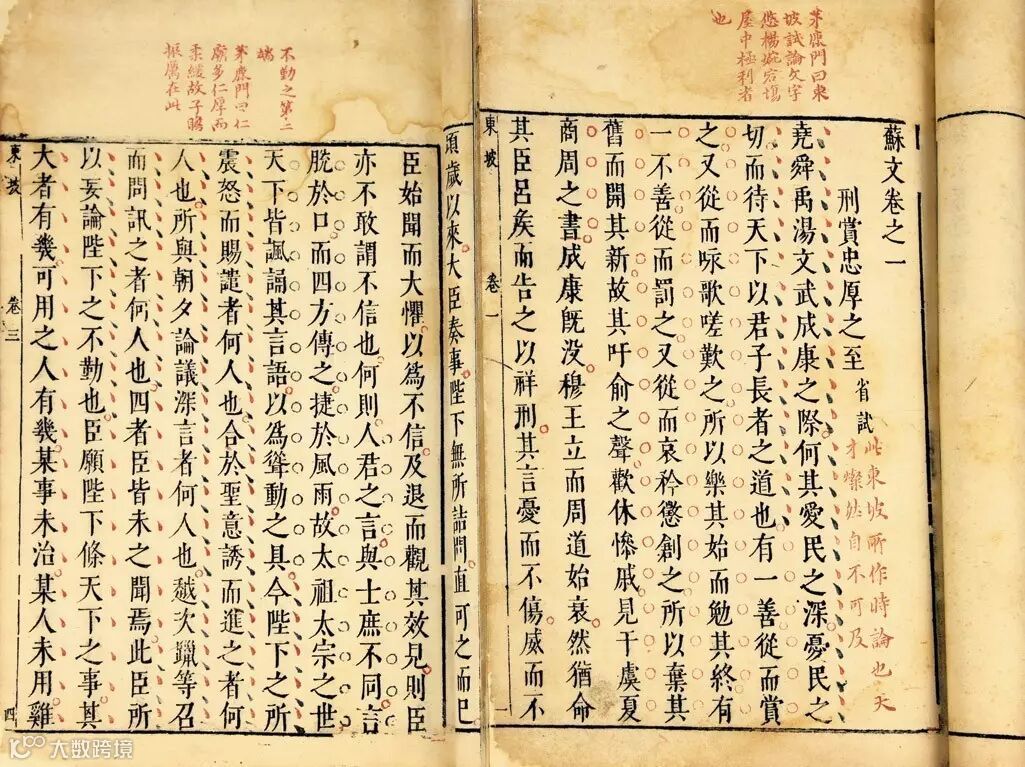 茅鹿門曰東
坡試論文字
悠揚婉宕場
屋中極利者
也
蘇文卷之一
刑賞忠厚之至 省試
此東坡所作時論也天
才燦然自不可及
堯舜禹湯文武成康之際何其愛民之深憂民之
切而待天下以君子長者之道也有一善從而賞
之又從而咏歌嗟歎之所以樂其始而勉其終有
一不善從而罰之又從而哀矜懲創之所以棄其
舊而開其新故其吁俞之聲歡休慘戚見于虞夏
商周之書成康既没穆王立而周道始衰然猶命
其臣呂矦而告之以祥刑其言憂而不傷威而不
東坡 卷一 一
不勤之第二
端
茅鹿門曰仁
廟多仁厚而
柔緩故子瞻
振厲在此
頃歲以來大臣奏事陛下無所詰問直可之而已
臣始聞而大懼以為不信及退而觀其效見則臣
亦不敢謂不信也何則人君之言與士庶不同言
脫於口而四方傳之捷於風雨故太祖太宗之世
天下皆諷誦其言語以為聳動之具今陛下之所
震怒而賜譴者何人也合於聖意誘而進之者何
人也所與朝夕論議深言者何人也越次躐等召
而問訊之者何人也四者臣皆未之聞焉此臣所
以妄論陛下之不勤也臣願陛下條天下之事其
大者有幾可用之人有幾某事未治某人未用雞
東坡 卷三 四
大数跨境